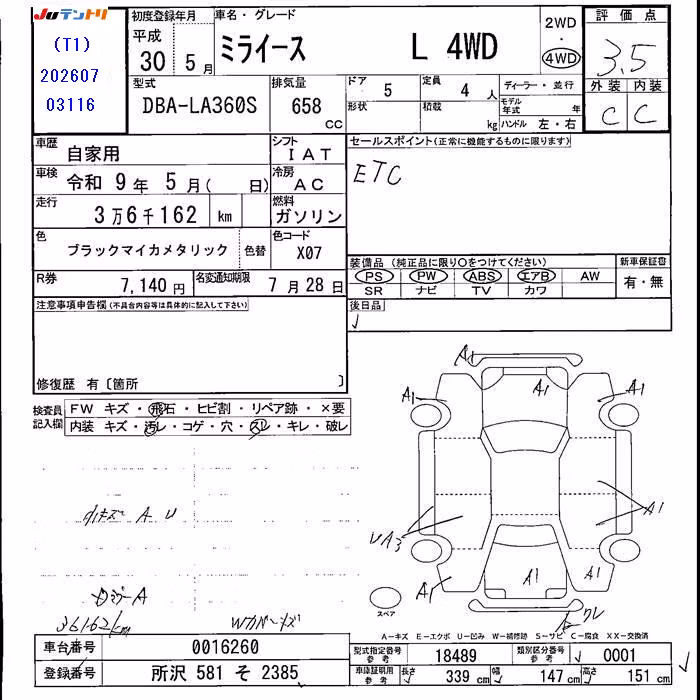 JUテントリ
(T1)
202607
03116
初度登録年月
平成
30 5 月
車名・グレード
ミライース L 4WD
2WD
・
4WD
評価点
3.5
外装 内装
C C
型式
DBA-LA360S
排気量
658 CC
ドア 5
定員 4 人
形状
積載 kg
ディーラー・並行
モデル年式 年
ハンドル 左・右
車歴
自家用
シフト
IAT
車検
令和 9 年 5 月( 日)
冷房
AC
走行
3万6千162 km
燃料
ガソリン
色
ブラックマイカメタリック
色替
色コード
X07
R券
7,140 円
名変通知期限
7 月 28 日
セールスポイント(正常に機能するものに限ります)
ETC
装備品(純正品に限り○をつけてください)
新車保証書
PS PW ABS エアB AW
SR ナビ TV カワ
有・無
後日品
注意事項申告欄(不具合内容等は具体的に記入して下さい)
修復歴 有〔箇所 〕
検査員記入欄
FW キズ・飛石・ヒビ割・リペア跡・×要
内装 キズ・汚レ・コゲ・穴・スレ・キレ・破レ
小キズ A U
ロミラーA
36162km
Wカバーキズ
A1
A1
A1
A1
A1
UA3
A1
A1
A1
A クレ
スペア
A-キズ E-エクボ U-凹み W-補修跡 S-サビ C-腐食 XX-交換済
車台番号
0016260
登録番号
所沢 581 そ 2385
型式指定番号 参考
18489
類別区分番号 参考
0001
車庫証明用 参考
長さ 339 cm
幅 147 cm
高さ 151 cm